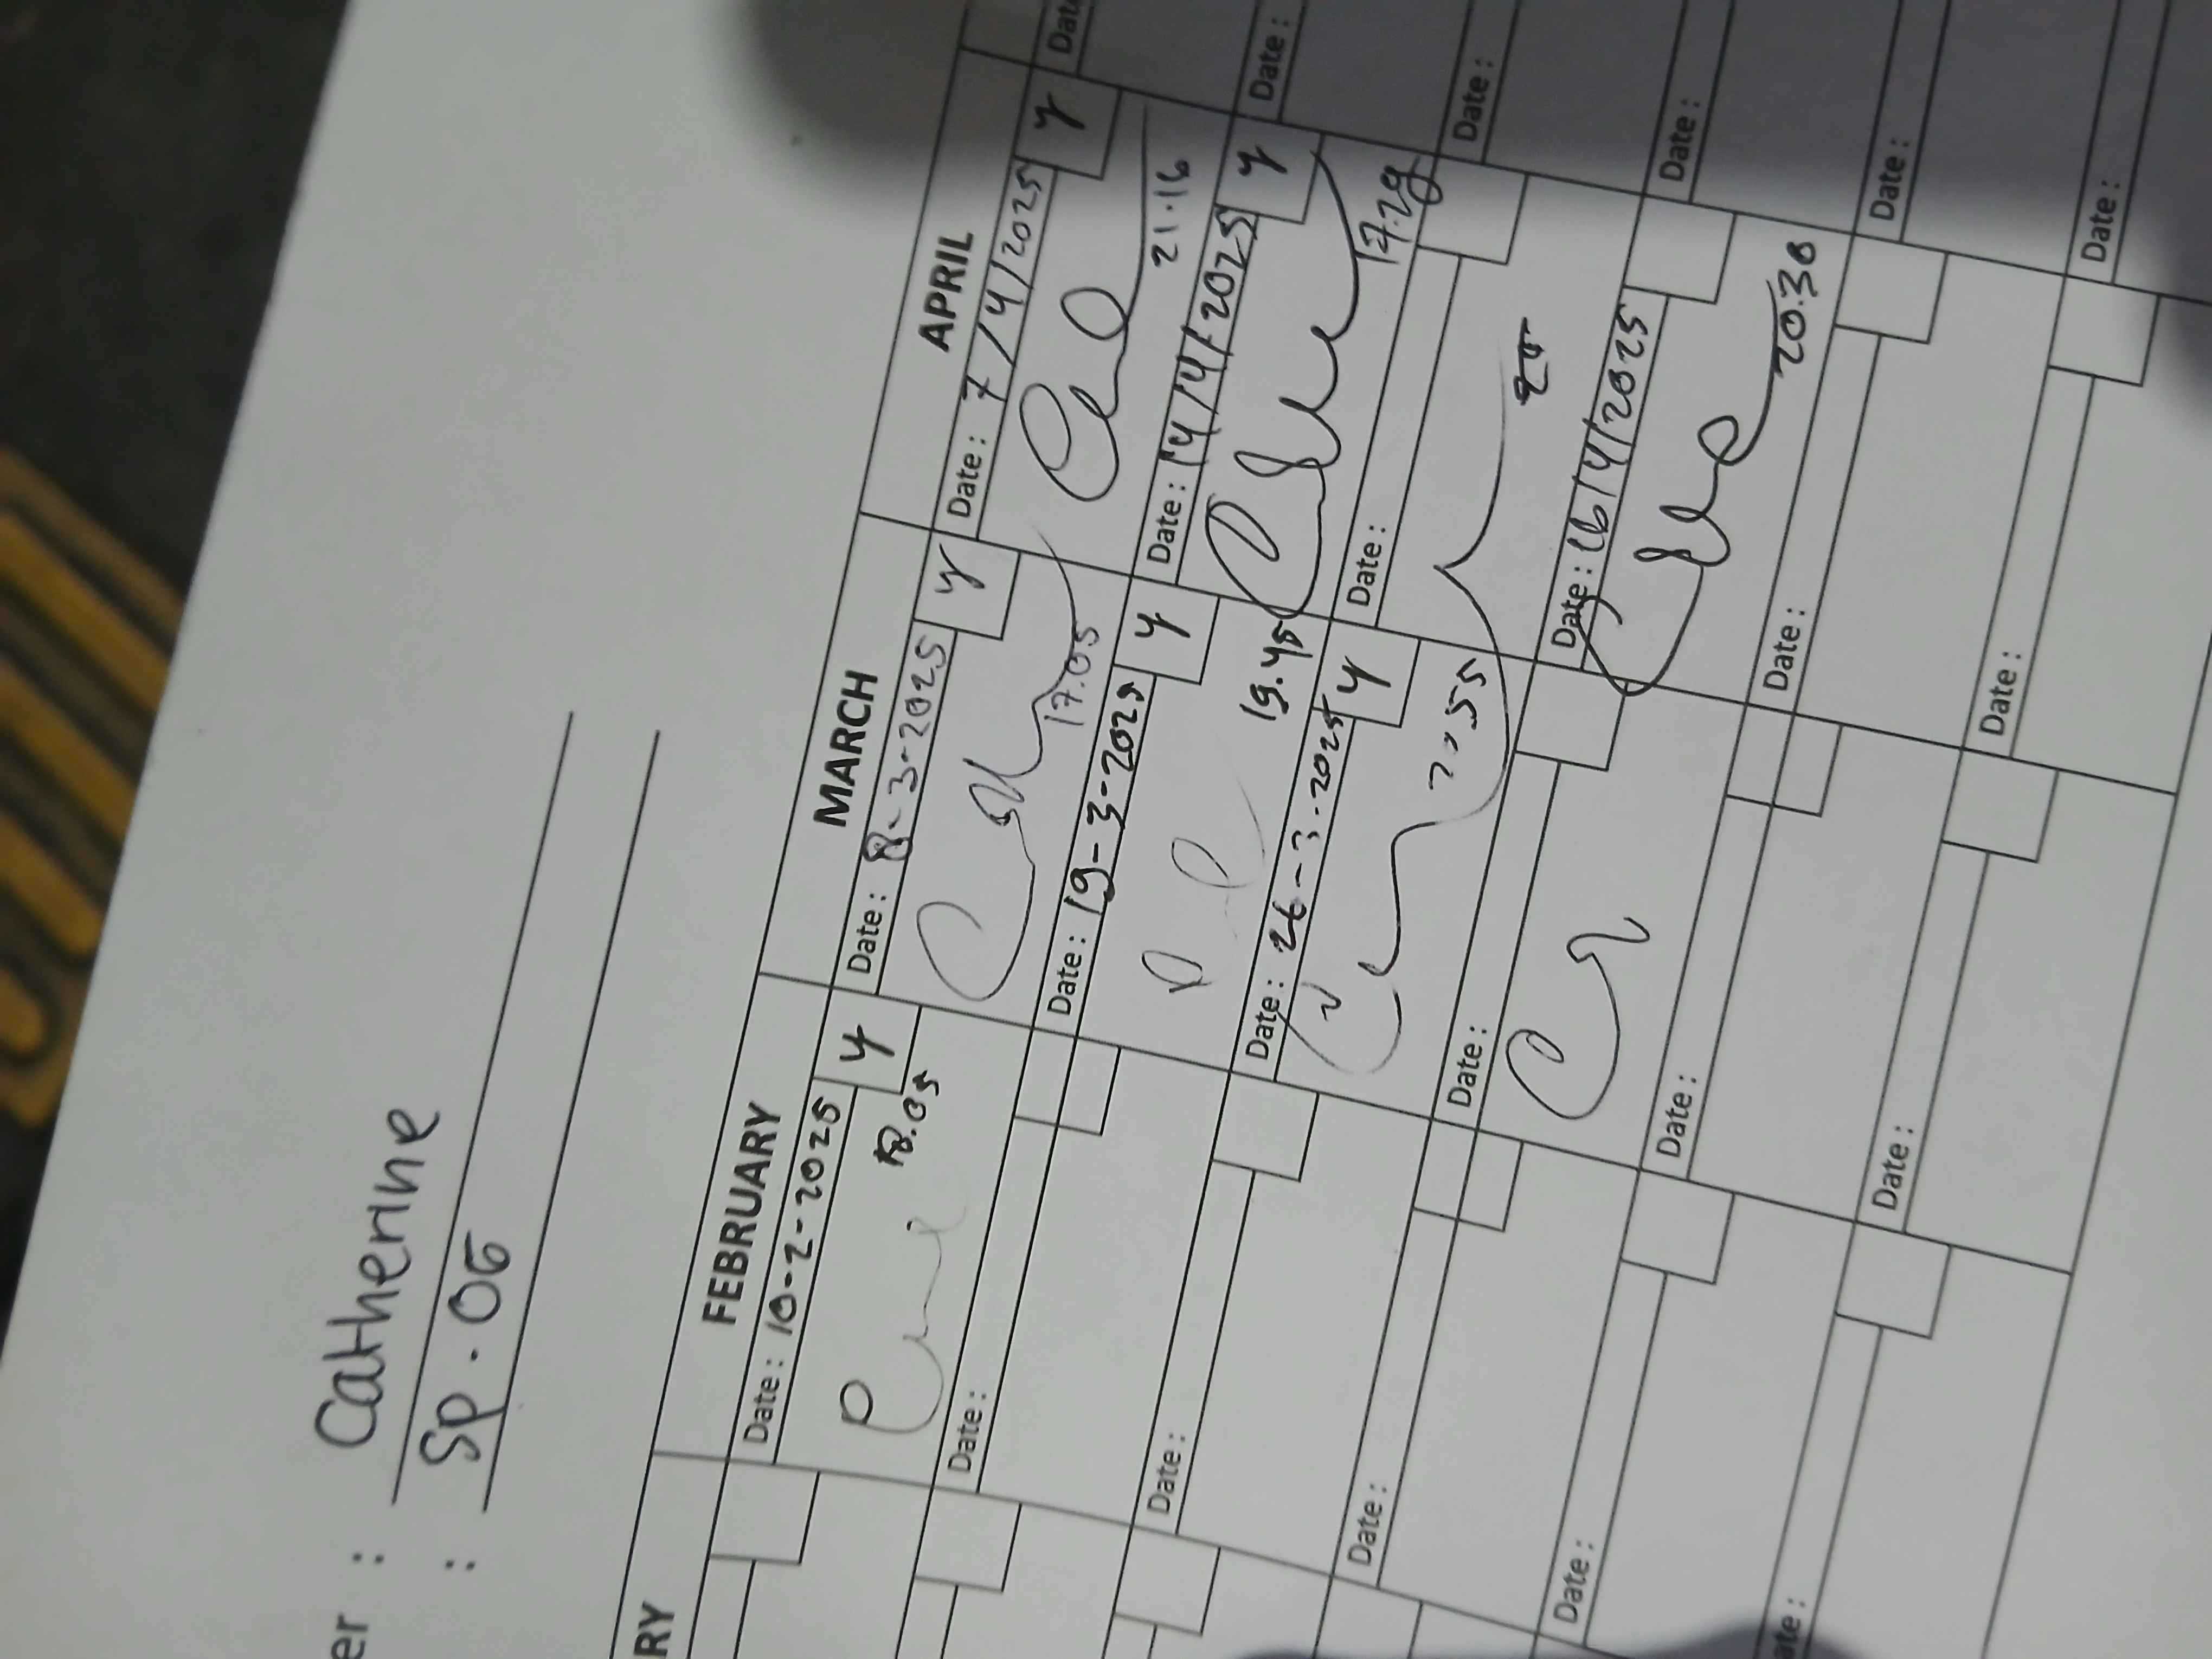 er : Catherine
: SP. 05
RY
FEBRUARY
MARCH
APRIL
Date : 10-2-2025 y
18.05
Date : 8-3-2025 y
17.05
Date : 7/4/2025 y
21.16
Date
Date :
Date : 19-3-2025 y
19.45
Date : 14/4/2025 y
17.29
Date :
Date :
Date : 26-3-2025 y
20.55
Date :
Date :
Date :
Date :
Date : 16/4/2025
20.30
Date :
Date :
Date :
Date :
Date :
ate :
Date :
Date :
Date :